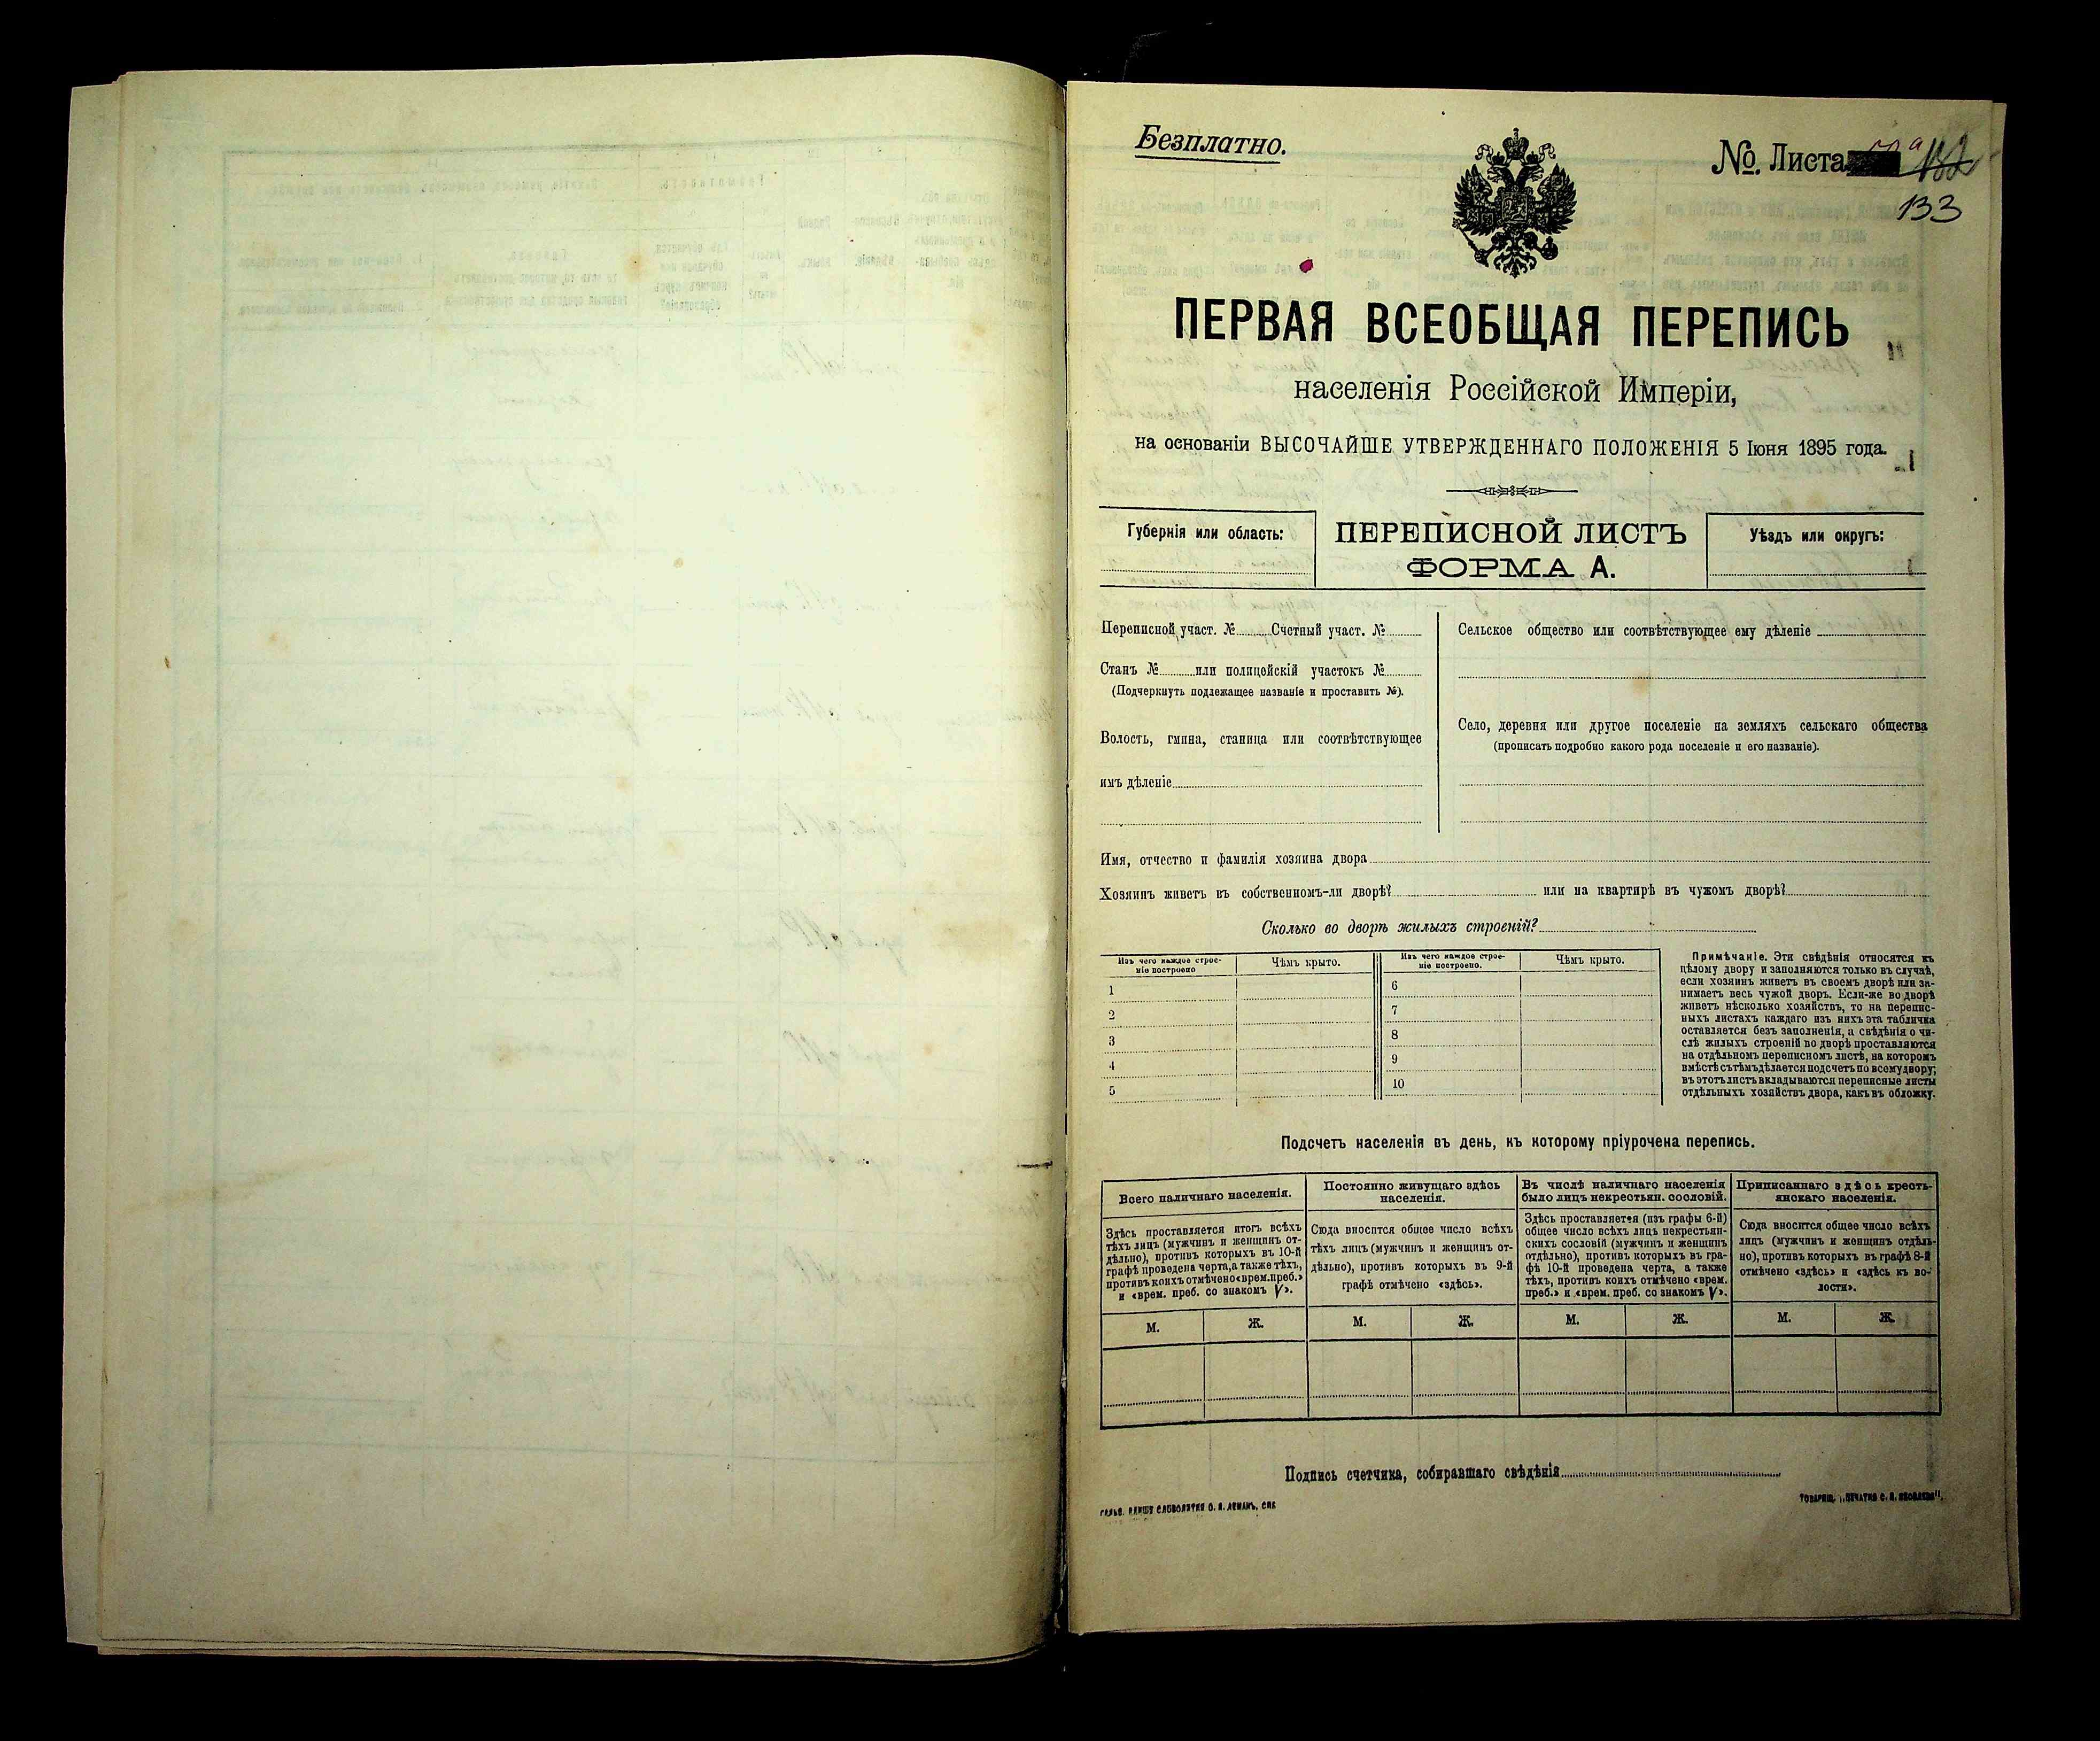 Безплатно.
№ Листа
133
ПЕРВАЯ ВСЕОБЩАЯ ПЕРЕПИСЬ
населенія Россійской Имперіи,
на основаніи ВЫСОЧАЙШЕ УТВЕРЖДЕННАГО ПОЛОЖЕНІЯ 5 Іюня 1895 года.
Губернія или область:
ПЕРЕПИСНОЙ ЛИСТЪ
ФОРМА А.
Уѣздъ или округъ:
Переписной участ. № Счетный участ. №
Станъ № или полицейскій участокъ №
(Подчеркнуть подлежащее названіе и проставить №).
Волость, гмина, станица или соотвѣтствующее
имъ дѣленіе
Сельское общество или соотвѣтствующее ему дѣленіе
Село, деревня или другое поселеніе на земляхъ сельскаго общества
(прописать подробно какого рода поселеніе и его названіе).
Имя, отчество и фамилія хозяина двора
Хозяинъ живетъ въ собственномъ-ли дворѣ? или на квартирѣ въ чужомъ дворѣ?
Сколько во дворѣ жилыхъ строеній?
Изъ чего каждое строе-
ніе построено
Чѣмъ крыто.
1
2
3
4
5
Изъ чего каждое строе-
ніе построено.
Чѣмъ крыто.
6
7
8
9
10
Примѣчаніе. Эти свѣдѣнія относятся къ
цѣлому двору и заполняются только въ случаѣ,
если хозяинъ живетъ въ своемъ дворѣ или за-
нимаетъ весь чужой дворъ. Если-же во дворѣ
живетъ нѣсколько хозяйствъ, то на перепис-
ныхъ листахъ каждаго изъ нихъ эта табличка
оставляется безъ заполненія, а свѣдѣнія о чи-
слѣ жилыхъ строеній во дворѣ проставляются
на отдѣльномъ переписномъ листѣ, на которомъ
вмѣстѣ съ тѣмъ дѣлается подсчетъ по всему двору;
въ этотъ листъ вкладываются переписные листы
отдѣльныхъ хозяйствъ двора, какъ въ обложку.
Подсчетъ населенія въ день, къ которому пріурочена перепись.
Всего наличнаго населенія.
Здѣсь проставляется итогъ всѣхъ
тѣхъ лицъ (мужчинъ и женщинъ от-
дѣльно), противъ которыхъ въ 10-й
графѣ проведена черта, а также тѣхъ,
противъ коихъ отмѣчено «врем. преб.»
и «врем. преб. со знакомъ V».
М. Ж.
Постоянно живущаго здѣсь
населенія.
Сюда вносится общее число всѣхъ
тѣхъ лицъ (мужчинъ и женщинъ от-
дѣльно), противъ которыхъ въ 9-й
графѣ отмѣчено «здѣсь».
М. Ж.
Въ числѣ наличнаго населенія
было лицъ некрестьян. сословій.
Здѣсь проставляется (изъ графы 6-й)
общее число всѣхъ лицъ некрестьян-
скихъ сословій (мужчинъ и женщинъ
отдѣльно), противъ которыхъ въ гра-
фѣ 10-й проведена черта, а также
тѣхъ, противъ коихъ отмѣчено «врем.
преб.» и «врем. преб. со знакомъ V».
М. Ж.
Приписаннаго здѣсь кресть-
янскаго населенія.
Сюда вносится общее число всѣхъ
лицъ (мужчинъ и женщинъ отдѣль-
но), противъ которыхъ въ графѣ 8-й
отмѣчено «здѣсь» и «здѣсь къ во-
лости».
М. Ж.
Подпись счетчика, собиравшаго свѣдѣнія
ГАЛЬВ. КЛИШЕ СЛОВОЛИТНИ О. И. ЛЕМАНЪ, СПБ
ТОВАРИЩ. „ПЕЧАТНЯ С. П. ЯКОВЛЕВА".